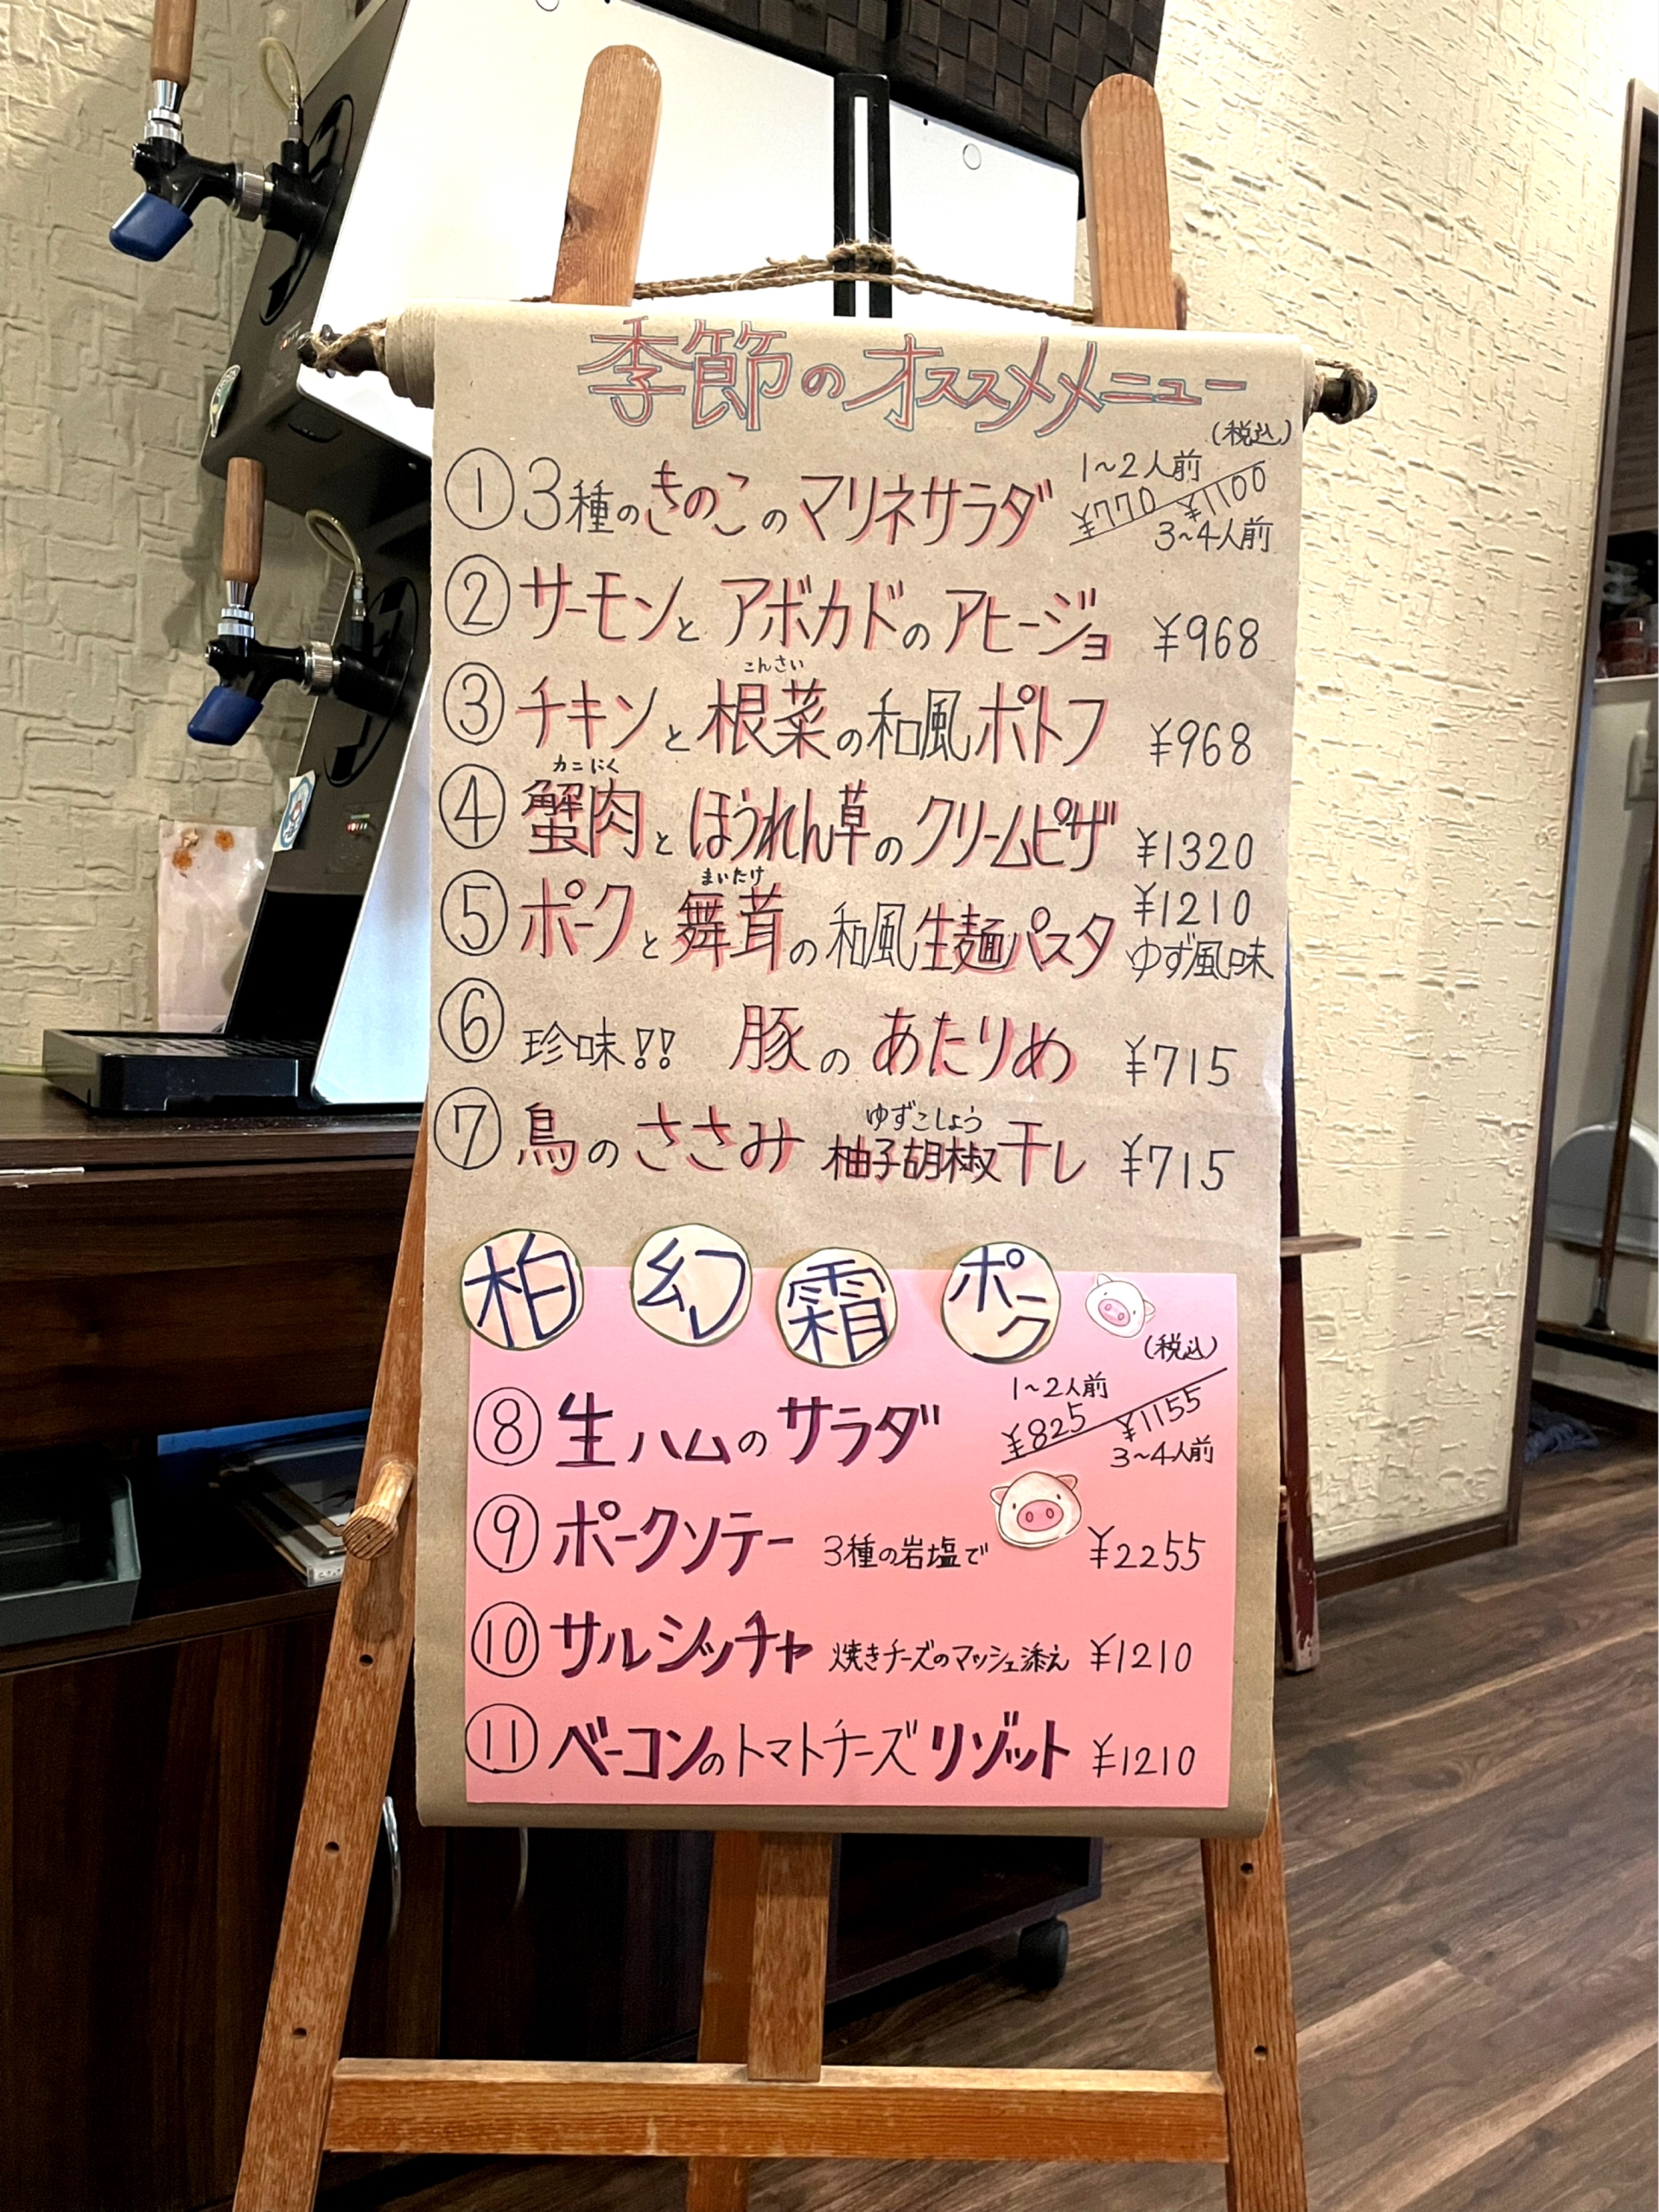 季節のオススメメニュー
(税込)
①3種のきのこのマリネサラダ 1~2人前 ¥770 ¥1100 3~4人前
②サーモンとアボカドのアヒージョ ¥968
こんさい
③チキンと根菜の和風ポトフ ¥968
カニにく
④蟹肉とほうれん草のクリームピザ ¥1320
まいたけ
⑤ポークと舞茸の和風生麺パスタ ¥1210 ゆず風味
⑥珍味!! 豚のあたりめ ¥715
ゆずこしょう
⑦鳥のささみ柚子胡椒干し ¥715
柏幻霜ポーク
(税込)
⑧生ハムのサラダ 1~2人前 ¥825 ¥1155 3~4人前
⑨ポークソテー 3種の岩塩で ¥2255
⑩サルシッチャ 焼きチーズのマッシュ添え ¥1210
⑪ベーコンのトマトチーズリゾット ¥1210